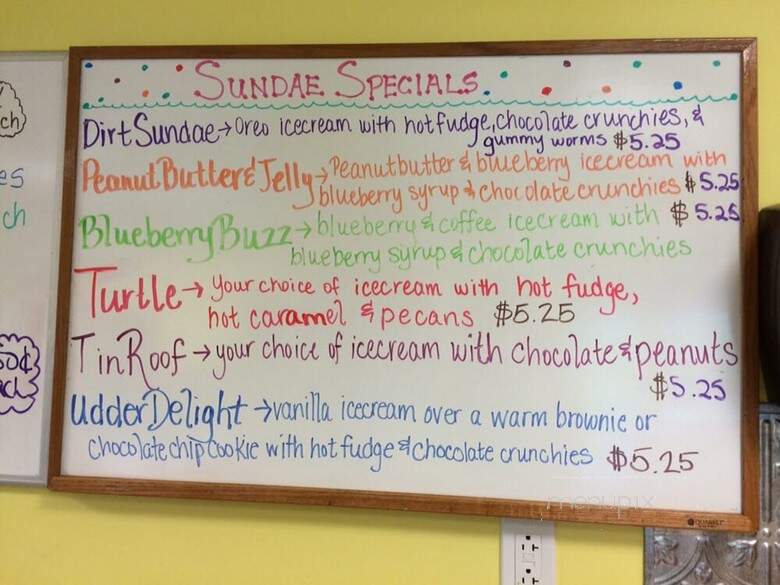 SUNDAE SPECIALS.
Dirt Sundae → Oreo icecream with hot fudge, chocolate crunchies, &
gummy worms $5.25
Peanut Butter & Jelly → Peanutbutter & blueberry icecream with
blueberry syrup & chocolate crunchies $5.25
Blueberry Buzz → blueberry & coffee icecream with $5.25
blueberry syrup & chocolate crunchies
Turtle → Your choice of icecream with hot fudge,
hot caramel & pecans $5.25
Tin Roof → your choice of icecream with chocolate & peanuts
$5.25
Udder Delight → vanilla icecream over a warm brownie or
chocolate chip cookie with hot fudge & chocolate crunchies $5.25
ch
es
ch
50¢
menupix
QUARTET